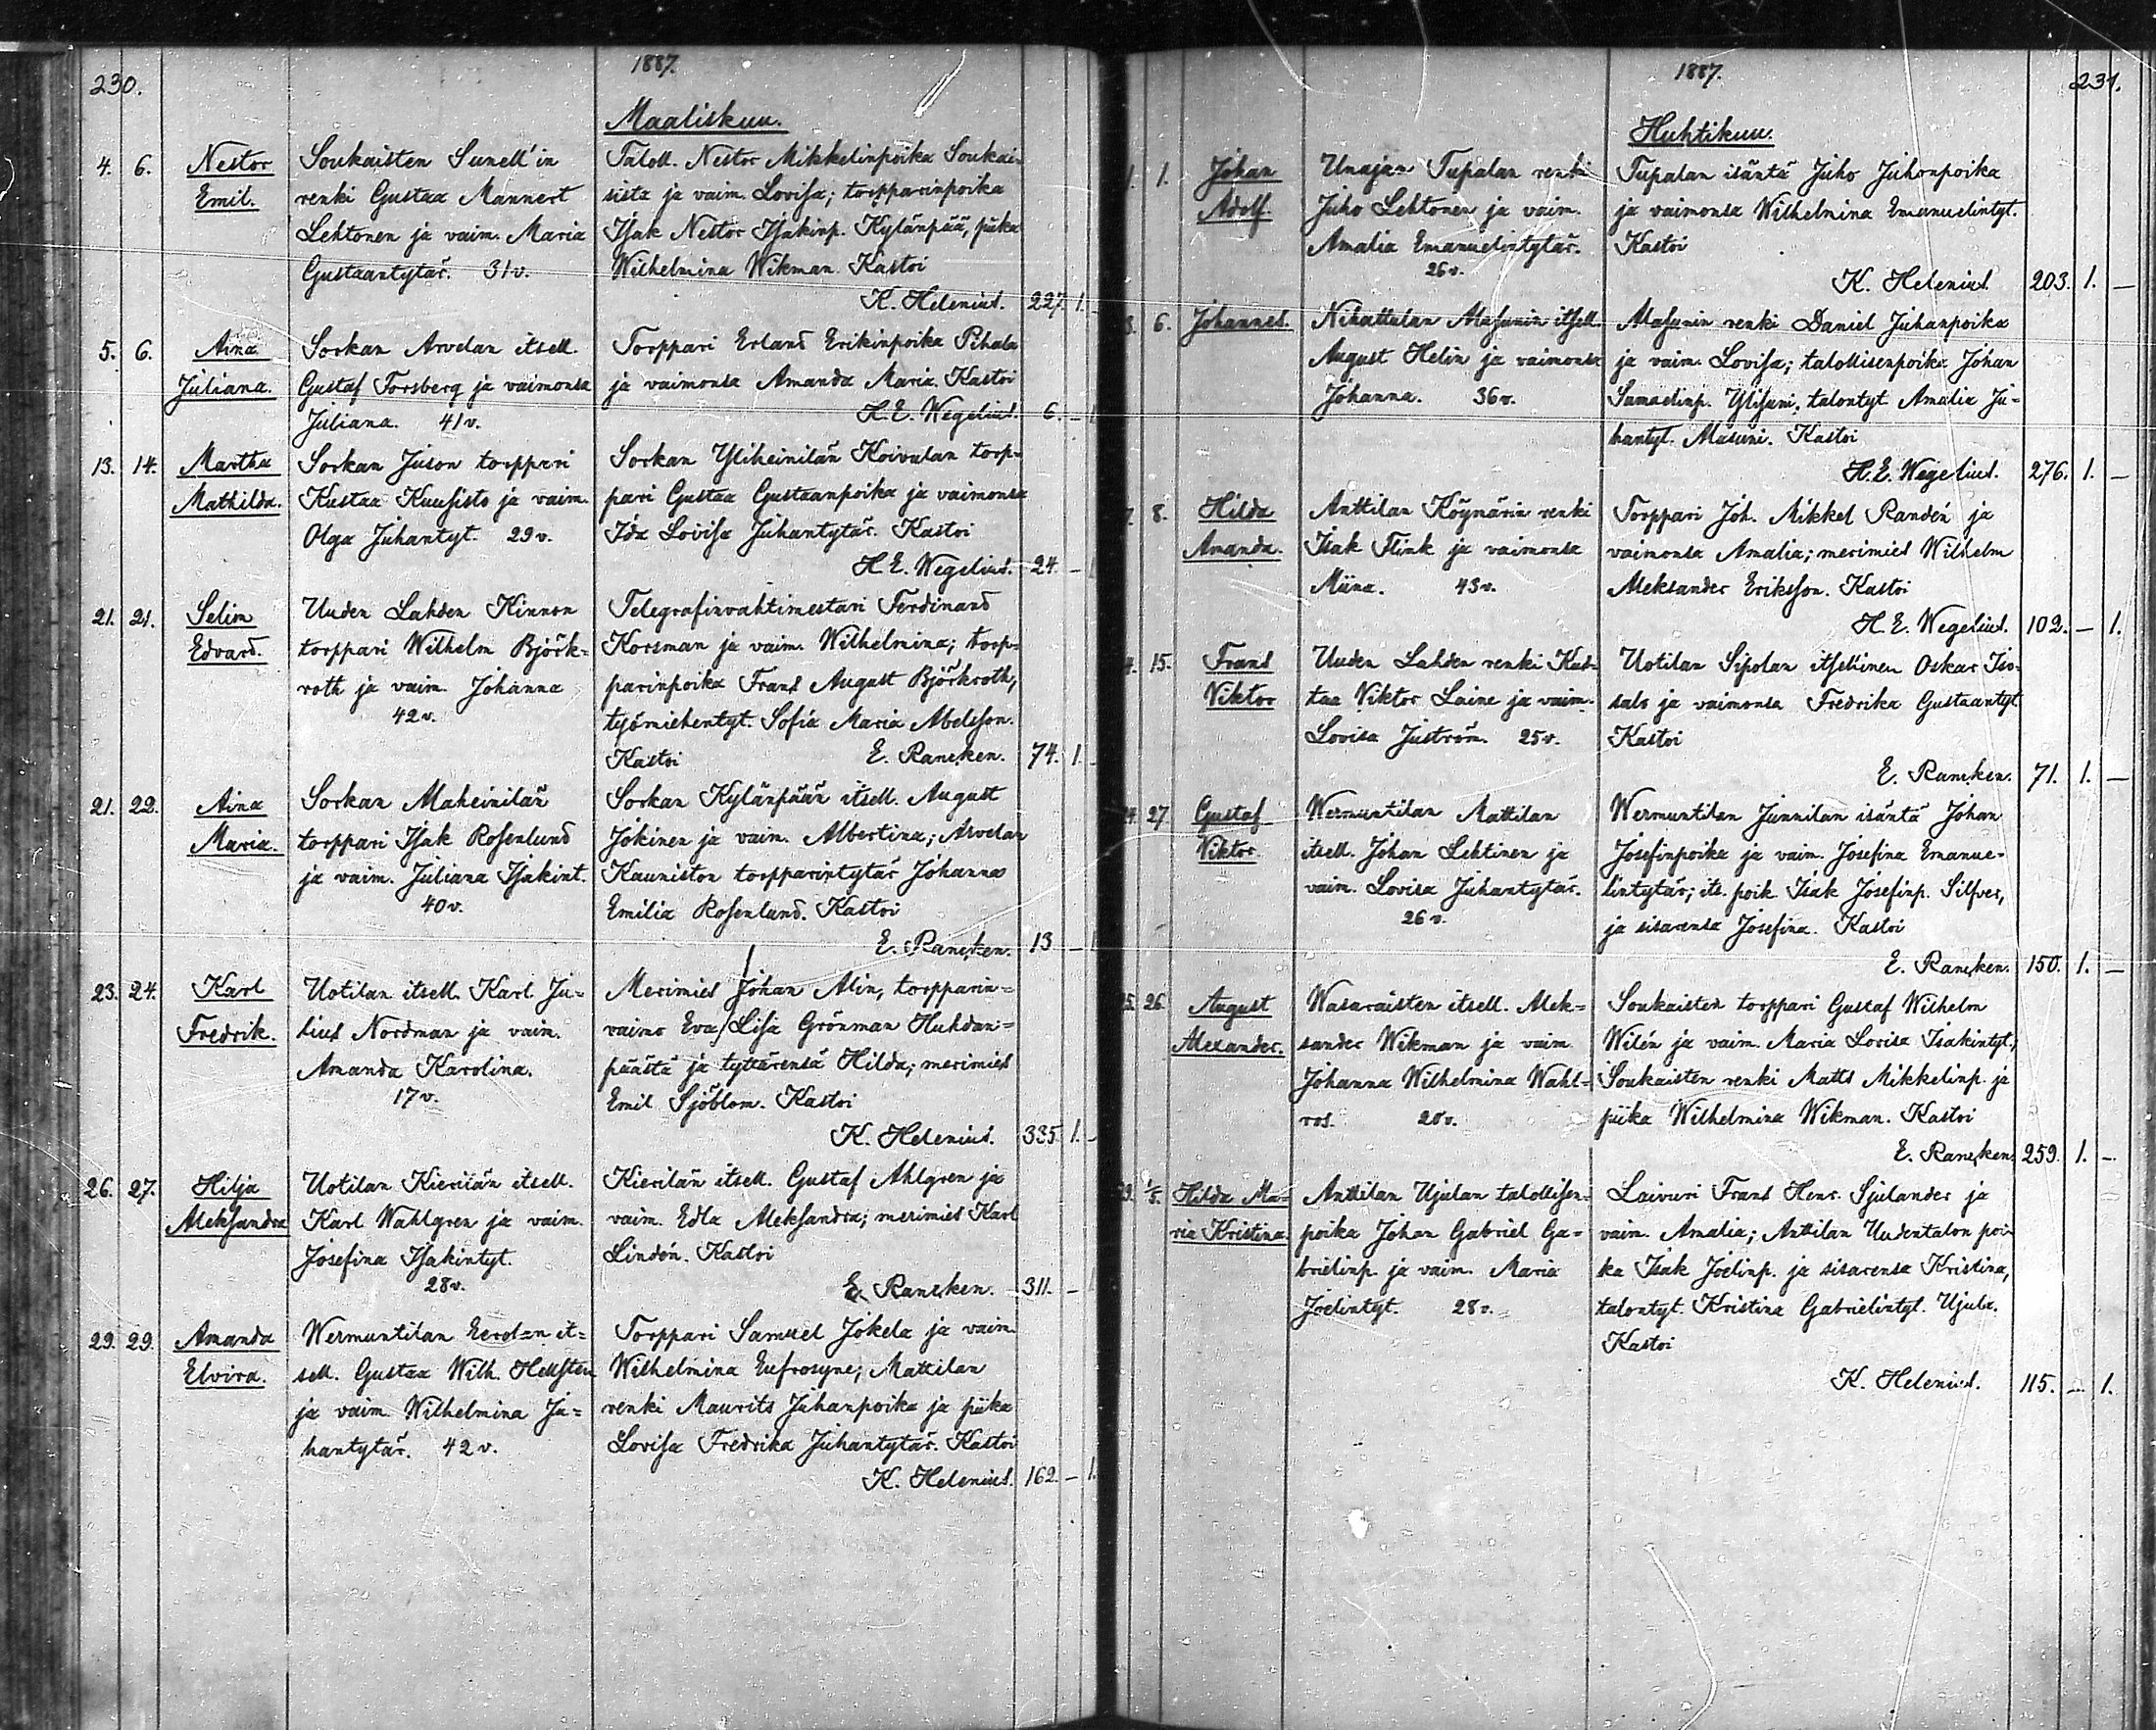 230.
1887.
Maaliskuu.
4. 6. Nestor Soukaisten Sunell'in Taloll. Nestor Mikkelinpoika Soukai-
Emil. renki Gustaa Mannert sista ja vaim. Lovisa; torpparinpoika
Lehtonen ja vaim. Maria Isak Nestor Isakinp. Kylänpää, piika
Gustaantytär. 31 v. Wilhelmina Wikman. Kastoi
K. Helenius. 227. 1.
5. 6. Aina Sorkan Arvelan itsell. Torppari Erland Erikinpoika Pihala
Juliana. Gustaf Forsberg ja vaimonsa ja vaimonsa Amanda Maria. Kastoi
Juliana. 41 v. H. E. Wegelius. 6. – 1
13. 14. Martha Sorkan Juson torppari Sorkan Yliheinilän Koivulan torp-
Mathilda. Kustaa Kuusisto ja vaim. pari Gustaa Gustaanpoika ja vaimonsa
Olga Juhantyt. 29 v. Ida Lovisa Juhantytär. Kastoi
H. E. Wegelius. 24. –
21. 21. Selim Uuden Lahden Kinnon Telegrafinvahtimestari Ferdinand
Edvard. torppari Wilhelm Björk- Korsman ja vaim. Wilhelmina; torp-
roth ja vaim. Johanna parinpoika Frans August Björkroth,
42 v. työmiehentyt. Sofia Maria Abelsson.
Kastoi E. Rancken. 74. 1.
21. 22. Aina Sorkan Alaheinilän Sorkan Kylänpään itsell. August
Maria. torppari Isak Rosenlund Jokinen ja vaim. Albertina; Arvelan
ja vaim. Juliana Isakint. Kauniston torpparintytär Johanna
40 v. Emilia Rosenlund. Kastoi
E. Rancken. 13 –
23. 24. Karl Uotilan itsell. Karl Ju- Merimies Johan Alin, torpparin-
Fredrik. lius Nordman ja vaim. vaimo Eva Lisa Grönman Huhdan-
Amanda Karolina. päästä ja tyttärensä Hilda; merimies
17 v. Emil Sjöblom. Kastoi
K. Helenius. 335. 1.
26. 27. Hilja Uotilan Kierilän itsell. Kierilän itsell. Gustaf Ahlgren ja
Aleksandra Karl Wahlgren ja vaim. vaim. Edla Aleksandra; merimies Karl
Josefina Isakintyt. Lindén. Kastoi
28 v. E. Rancken. 311. –
29. 29. Amanda Wermuntilan Eerolan it- Torppari Samuel Jokela ja vaim.
Elvira. sell. Gustaa Wilh. Hellsten Wilhelmina Eufrosyne; Mattilan
ja vaim. Wilhelmina Ju- renki Maurits Juhanpoika ja piika
hantytär. 42 v. Lovisa Fredrika Juhantytär. Kastoi
K. Helenius. 162. – 1.
1887.
231.
Huhtikuu.
1. 1. Johan Unajan Tupalan renki Tupalan isäntä Juho Juhonpoika
Adolf Juho Lehtonen ja vaim. ja vaimonsa Wilhelmina Emanuelintyt.
Amalia Emanuelintytär. Kastoi
26 v. K. Helenius. 203. 1. –
6. Johannes. Nihattulan Alasunin itsell. Alasunin renki Daniel Juhanpoika
August Helin ja vaimonsa ja vaim. Lovisa; talollisenpoika Johan
Johanna. 36 v. Samuelinp. Ylisuni, talontyt. Amalia Ju-
hantyt. Alasuni. Kastoi
H. E. Wegelius. 276. 1. –
7. 8. Hilda Anttilan Köynärin renki Torppari Joh. Mikkel Randén ja
Amanda. Isak Flink ja vaimonsa vaimonsa Amalia; merimies Wilhelm
Miina. 43 v. Aleksander Eriksson. Kastoi
H. E. Wegelius. 102. – 1.
15. Frans Uuden Lahden renki Kus- Uotilan Sipolan itsellinen Oskar Iso-
Viktor taa Viktor Laine ja vaim. salo ja vaimonsa Fredrika Gustaantyt.
Lovisa Juström. 25 v. Kastoi
E. Rancken. 71. 1. –
24. 27. Gustaf Wermuntilan Mattilan Wermuntilan Junnilan isäntä Johan
Viktor. itsell. Johan Lehtinen ja Josefinpoika ja vaim. Josefina Emanue-
vaim. Lovisa Juhantytär. lintytär; its. poik. Isak Josefinp. Silfver,
26 v. ja sisarensa Josefina. Kastoi
E. Rancken. 150. 1. –
25. 26. August Wasaraisten itsell. Alek- Soukaisten torppari Gustaf Wilhelm
Alexander. sander Wikman ja vaim. Wilén ja vaim. Maria Lovisa Isakintyt.;
Johanna Wilhelmina Wahl- Soukaisten renki Matts Mikkelinp. ja
ros. 20 v. piika Wilhelmina Wikman. Kastoi
E. Rancken. 259. 1. –
1/5. Hilda Ma- Anttilan Ujulan talollisen- Laivuri Frans Henr. Sjulander ja
ria Kristina. poika Johan Gabriel Ga- vaim. Amalia; Anttilan Uudentalon poi-
brielinp. ja vaim. Maria ka Isak Joelinp. ja sisarensa Kristina,
Joelintyt. 28 v. talontyt. Kristina Gabrielintyt. Ujula.
Kastoi
K. Helenius. 115. – 1.